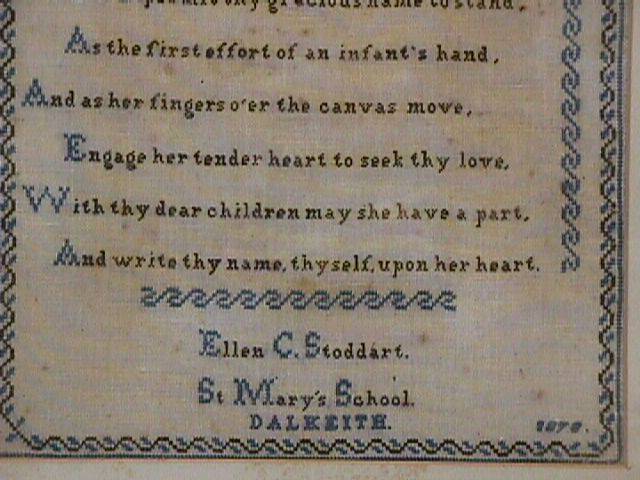 permit thy gracious name to stand,
As the first effort of an infant's hand,
And as her fingers o'er the canvas move,
Engage her tender heart to seek thy love,
With thy dear children may she have a part,
And write thy name, thyself, upon her heart.
Ellen C. Stoddart.
St Mary's School.
DALKEITH.